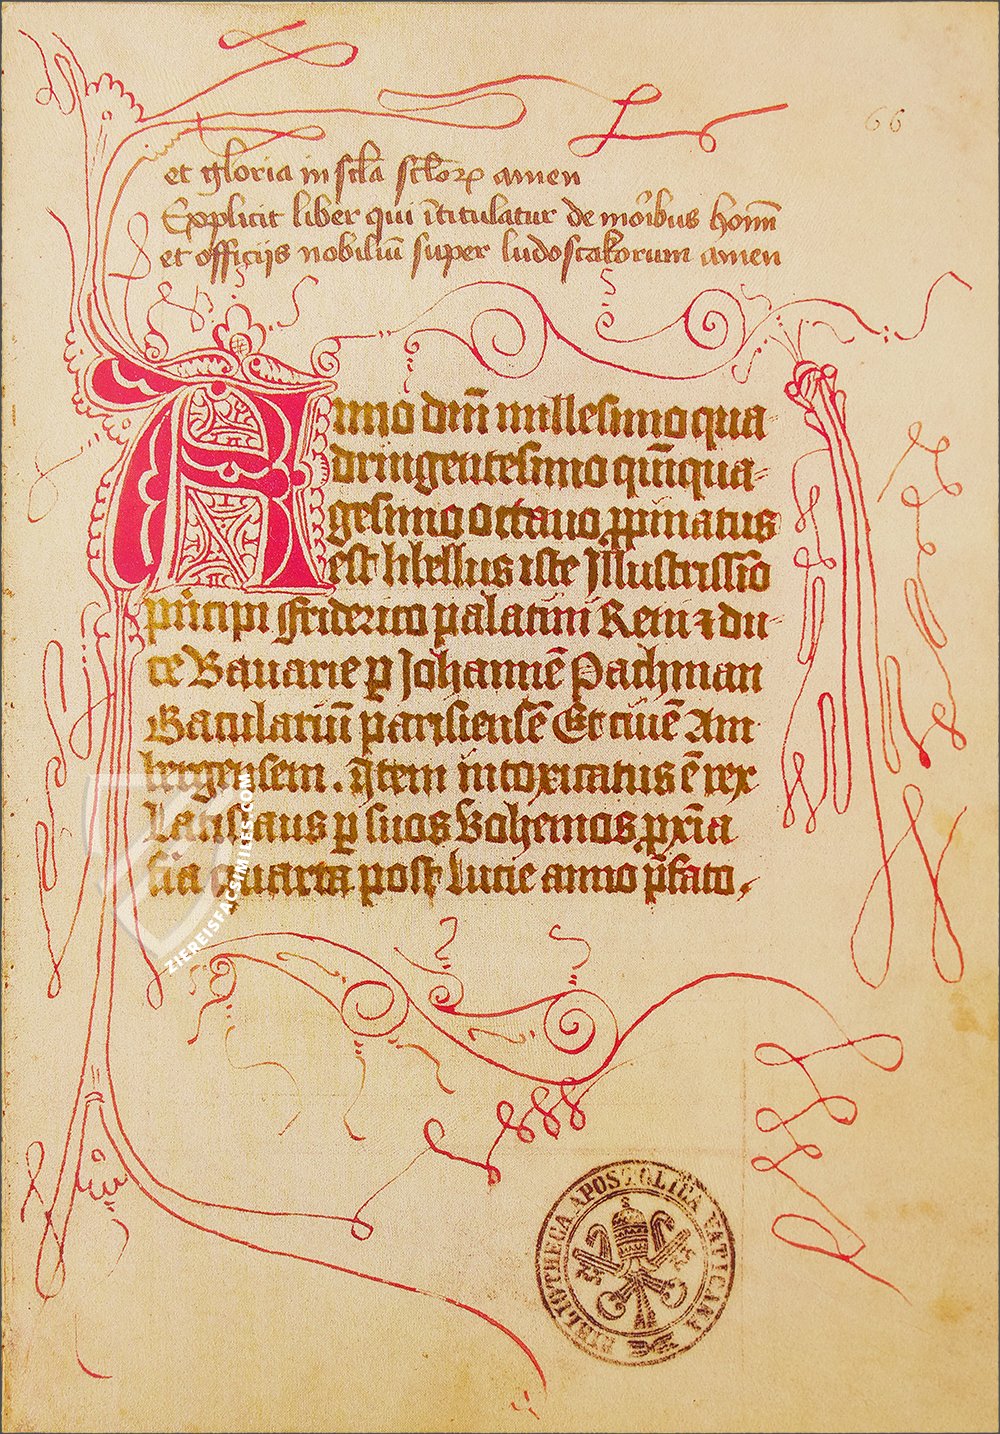 66
et gloria in scl̄a scl̄orꝝ amen
Explicit liber qui ītitulatur de moribus homī
et officijs nobiliū super ludo scakorum amen
Anno dm̄ millesimo qua-
dringentesimo quīqua-
gesimo octauo ꝓpinatus
est libellus iste Illustrissīo
prīcipi Friderico palatini Reni ⁊ du-
ce Bauarie ꝑ Johannē Pachman
Baculariū parisiensē Et ciuē Am-
bergensem. Item intoxicatus ē rex
Latislaus ꝑ suos Bohemos, ꝓxīa
fīa quarta post Lucie anno p̄fato.
ZIEREISFACSIMILES.COM
BIBLIOTHECA APOSTOLICA VATICANA